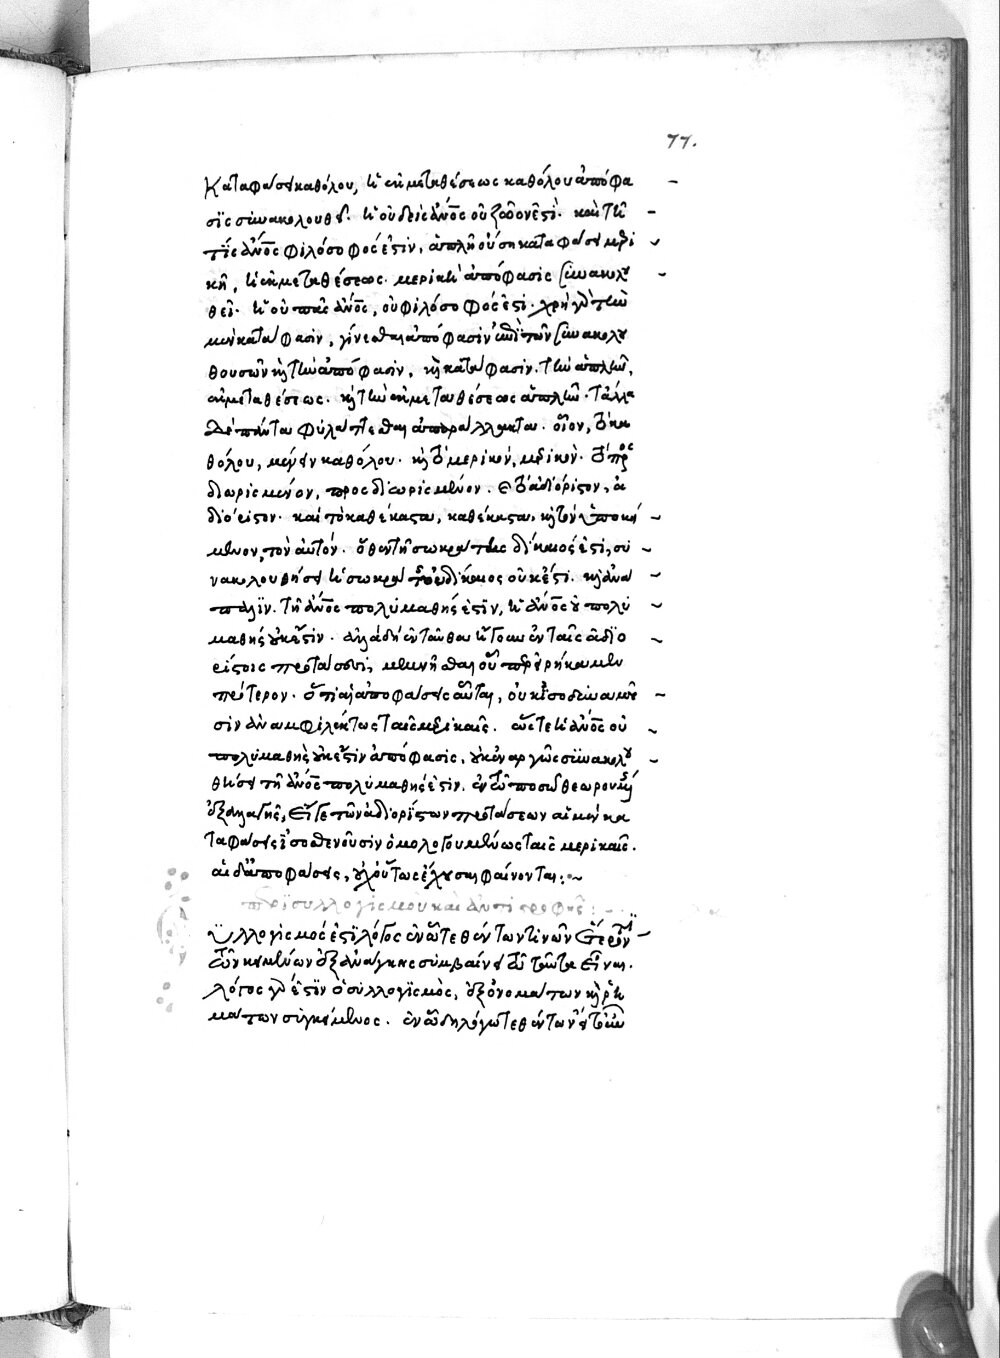 77.
καταφάσει καθόλου, ἡ ἐκ μεταθέσεως καθόλου ἀπόφα
σις συνακολουθεῖ. ἡ οὐδεὶς ἄνος οὐ ζῶον ἐστί. καὶ τῇ
τὶς ἄνος φιλόσοφος ἐστιν, ἁπλῇ οὔσῃ καταφάσει μερι
κῇ, ἡ ἐκ μεταθέσεως μερικὴ ἀπόφασις συνακολου
θεῖ. ἡ οὐ πᾶς ἄνος, οὐ φιλόσοφος ἐστί. χρὴ γὰρ τὴν
μὲν κατάφασιν, γίνεσθαι ἀπόφασιν ἐπὶ τῶν συνακολου
θουσῶν καὶ τὴν ἀπόφασιν, κατάφασιν. τὴν ἁπλῆν,
ἐκ μεταθέσεως. καὶ τὴν ἐκ μεταθέσεως ἁπλῆν. τἄλλα
δὲ πάντα φυλάττεσθαι ἀπαράλλακτα. οἷον, τὸ κα
θόλου, μένειν καθόλου. καὶ τὸ μερικὸν, μερικόν. τὸ προς
διωρισμένον, προσδιωρισμένον. τὸ ἀδιόριστον, ἀ
διόριστον. καὶ τὸ καθέκαστα, καθέκαστα, καὶ τὸν ὑποκεί
μενον, τὸν αὐτόν. ὅθεν τῇ σωκράτης δίκαιος ἐστί, συ
νακολουθήσει ἡ σωκράτης οὐ δίκαιος οὐκ ἔστι. καὶ ἀνά
παλιν. τῇ ἄνος πολυμαθής ἐστιν, ἡ ἄνος οὐ πολυ
μαθὴς οὐκ ἔστιν. ἀλλὰ δὴ ἐνταῦθα ἤγουν ἐν ταῖς ἀδιο
ρίστοις προτάσεσι, μεμνῆσθαι οὗ προειρήκαμεν
πρότερον. ὅτι αἱ ἀποφάσεις αὗται, οὐκ ἰσοδυναμοῦ
σιν ἀναμφιλέκτως ταῖς μερικαῖς. ὥστε ἡ ἄνος οὐ
πολυμαθὴς οὐκ ἔστιν ἀπόφασις, οὐκ ἐναργῶς συνακολου
θήσει τῇ ἄνος πολυμαθής ἐστιν. ἐν τῷ ποσῷ θεωρουμένη
ἐξαλλαγῆς, εἴγε τῶν ἀδιορίστων προτάσεων αἱ μὲν κα
ταφάσεις ἰσοσθενοῦσιν ὁμολογουμένως ταῖς μερικαῖς.
αἱ δ' ἀποφάσεις, οὐχ οὕτως ἔχουσαι φαίνονται:
περὶ συλλογισμοῦ καὶ ἀντιστροφῆς:
Συλλογισμός ἐστι λόγος ἐν ᾧ τεθέντων τινῶν ἕτερόν τι
τῶν κειμένων ἐξ ἀνάγκης συμβαίνει τῷ ταῦτα εἶναι.
λόγος γάρ ἐστιν ὁ συλλογισμὸς, ἐξ ὀνομάτων καὶ ῥη
μάτων συγκείμενος. ἐν ᾧ δὴ λόγῳ τεθέντων